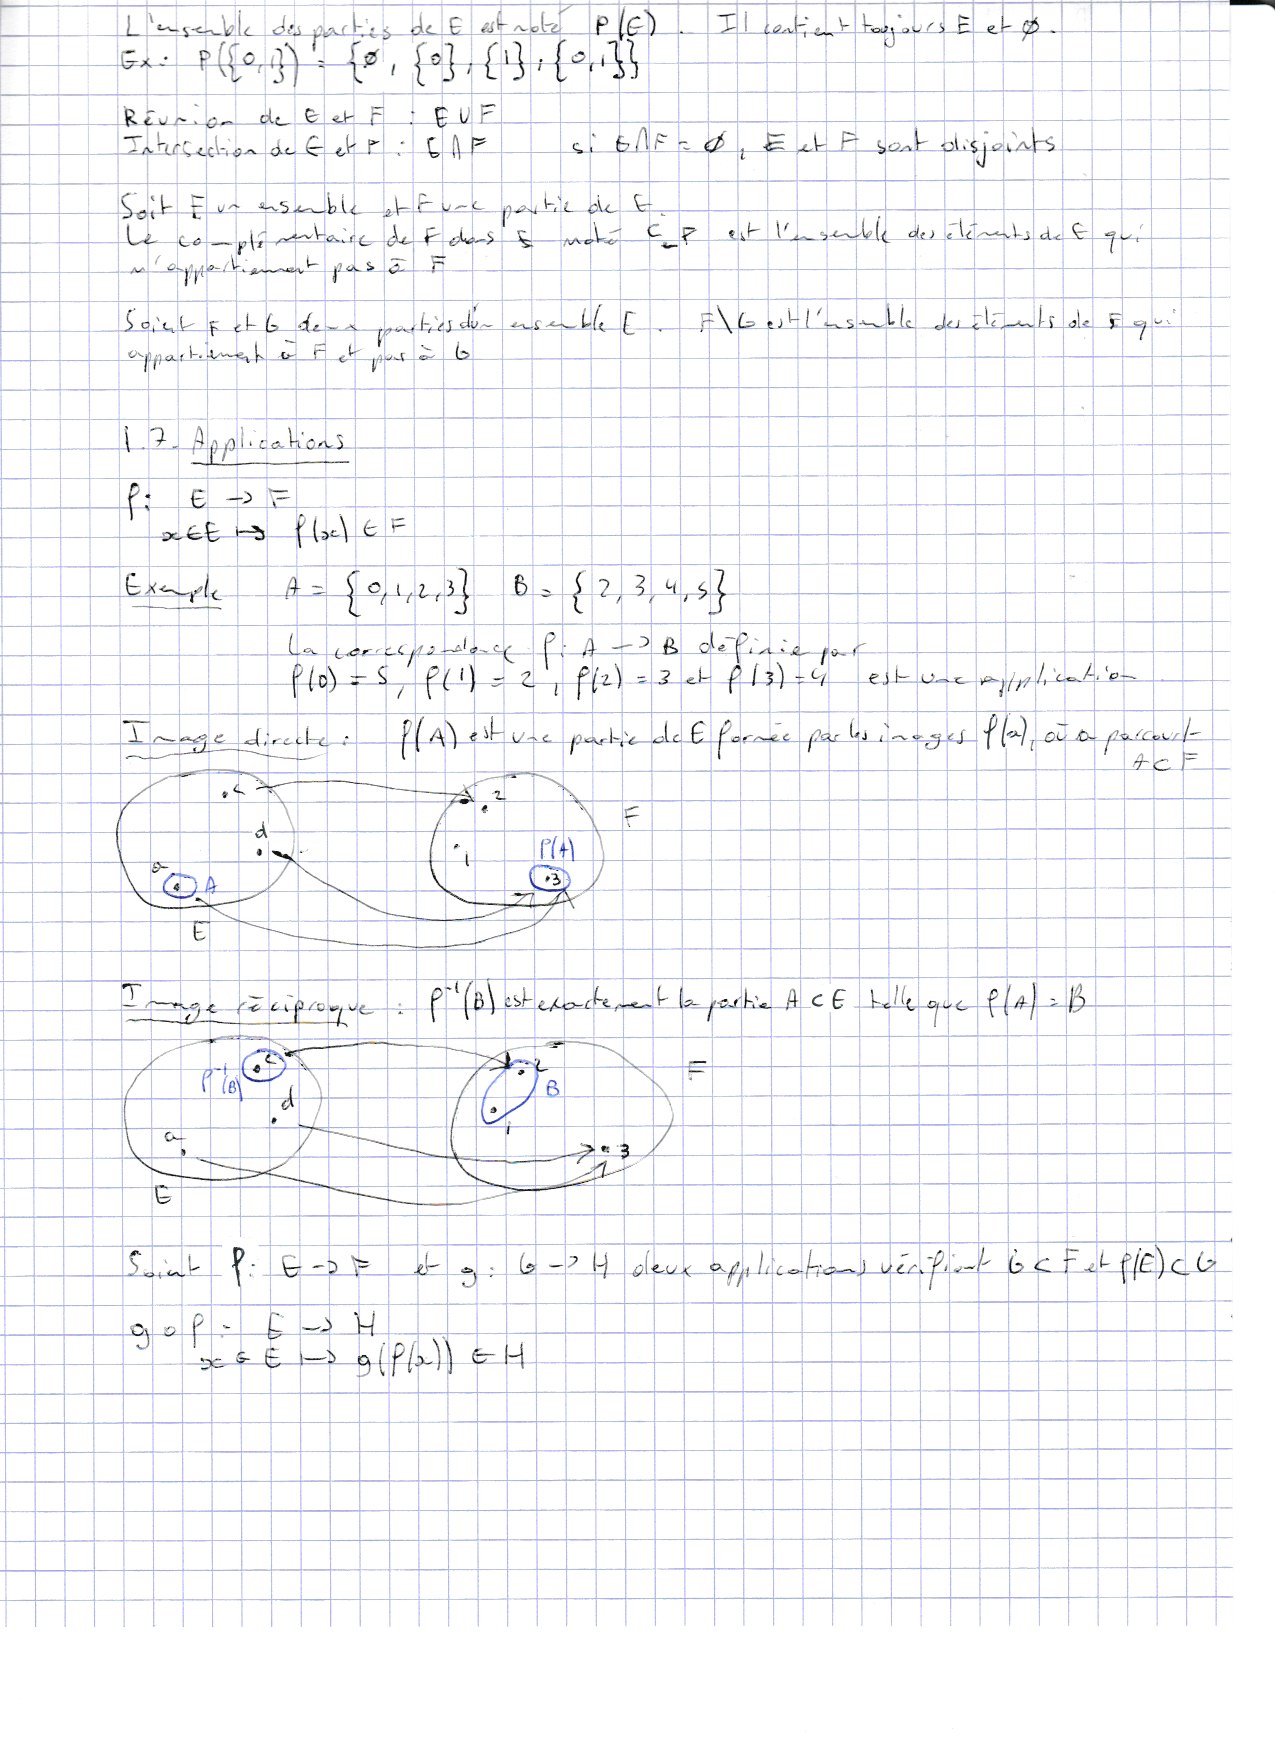 L'ensemble des parties de E est noté P(E). Il contient toujours E et ∅.
Ex: P({0,1}) = {∅, {0}, {1}, {0,1}}
Réunion de E et F : E∪F
Intersection de E et F : E∩F si E∩F = ∅, E et F sont disjoints
Soit E un ensemble et F une partie de E.
Le complémentaire de F dans E noté C_E F est l'ensemble des éléments de E qui
n'appartiennent pas à F
Soient F et G deux parties d'un ensemble E. F\G est l'ensemble des éléments de E qui
appartiennent à F et pas à G
1.7. Applications
f: E → F
x∈E ↦ f(x) ∈ F
Exemple A = {0,1,2,3} B = {2,3,4,5}
La correspondance f: A → B définie par
f(0) = 5, f(1) = 2, f(2) = 3 et f(3) = 4 est une application
Image directe : f(A) est une partie de E formée par les images f(a), où a parcourt
A⊂F
c
2
F
d
1
f(A)
a
A
3
E
Image réciproque : f⁻¹(B) est exactement la partie A⊂E telle que f(A) = B
c
2
F
f⁻¹(B)
B
d
1
a
3
E
Soient f: E → F et g: G → H deux applications vérifiant G⊂F et f(E)⊂G
g∘f : E → H
x∈E ↦ g(f(x)) ∈ H